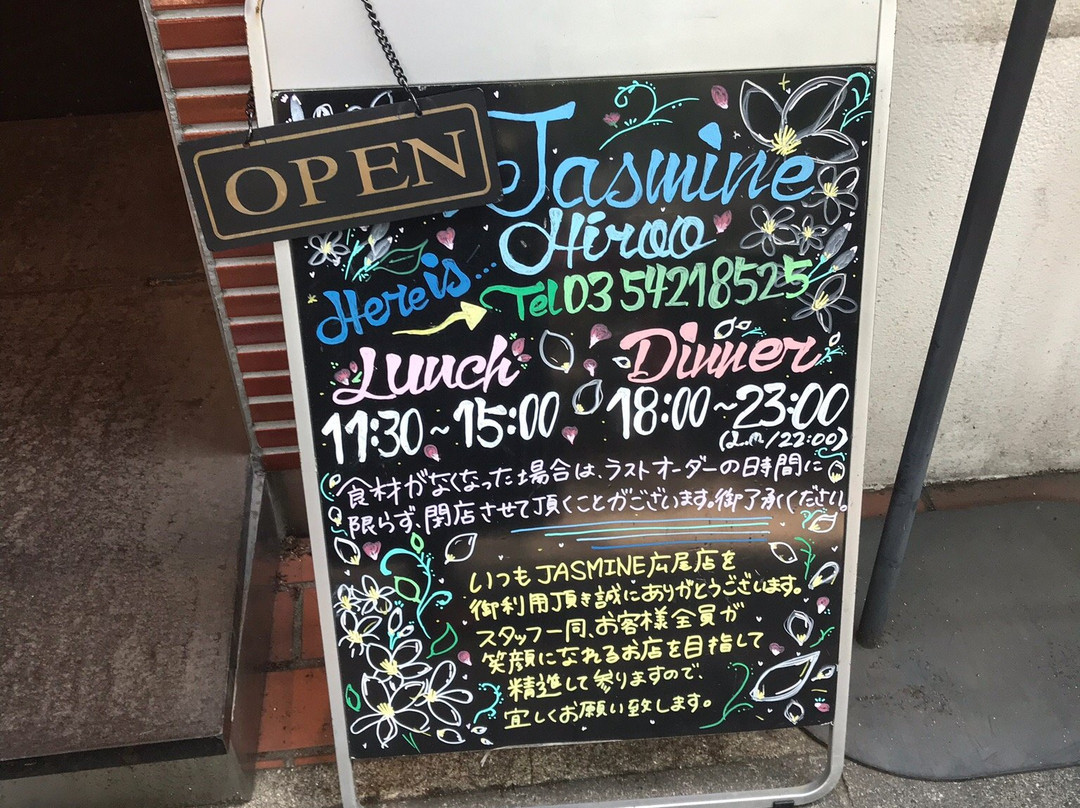 OPEN
Jasmine
Hiroo
Here is...
Tel 03 5421 8525
Lunch
11:30~15:00
Dinner
18:00~23:00
22:00)
食材がなくなった場合は、ラストオーダーの日時間に
限らず、閉店させて頂くことがございます。御了承ください。
いつもJASMINE広尾店を
御利用頂き誠にありがとうございます。
スタッフ一同、お客様全員が
笑顔になれるお店を目指して
精進して参りますので、
宜しくお願い致します。